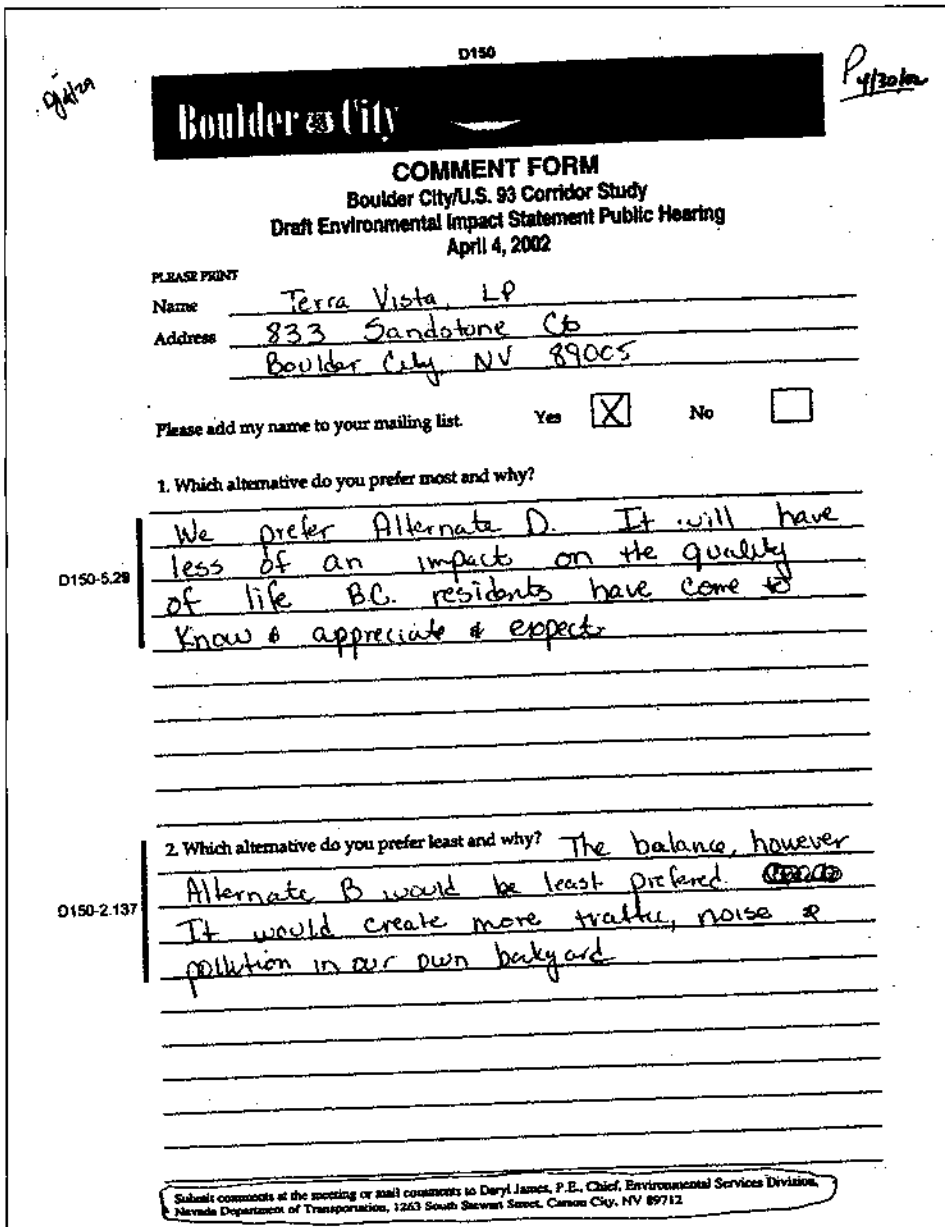 D150
P 4/30/02
Boulder City
COMMENT FORM
Boulder City/U.S. 93 Corridor Study
Draft Environmental Impact Statement Public Hearing
April 4, 2002
PLEASE PRINT
Name Terra Vista, LP
Address 833 Sandstone Ct
Boulder City, NV 89005
Please add my name to your mailing list. Yes X No
1. Which alternative do you prefer most and why?
We prefer Alternate D. It will have
D150-5.29 less of an impacts on the quality
of life B.C. residents have come to
know & appreciate & expect.
2. Which alternative do you prefer least and why? The balance, however
Alternate B would be least prefered.
D150-2.137 It would create more traffic, noise &
pollution in our own backyard
Submit comments at the meeting or mail comments to Daryl James, P.E., Chief, Environmental Services Division,
Nevada Department of Transportation, 1263 South Stewart Street, Carson City, NV 89712